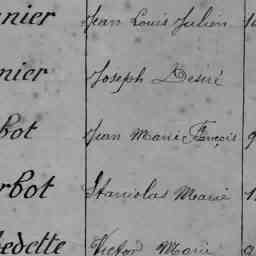 nier Jean Louis Julien
nier Joseph Désiré
bot Jean Marie François
rbot Stanislas Marie
edette Victor Marie